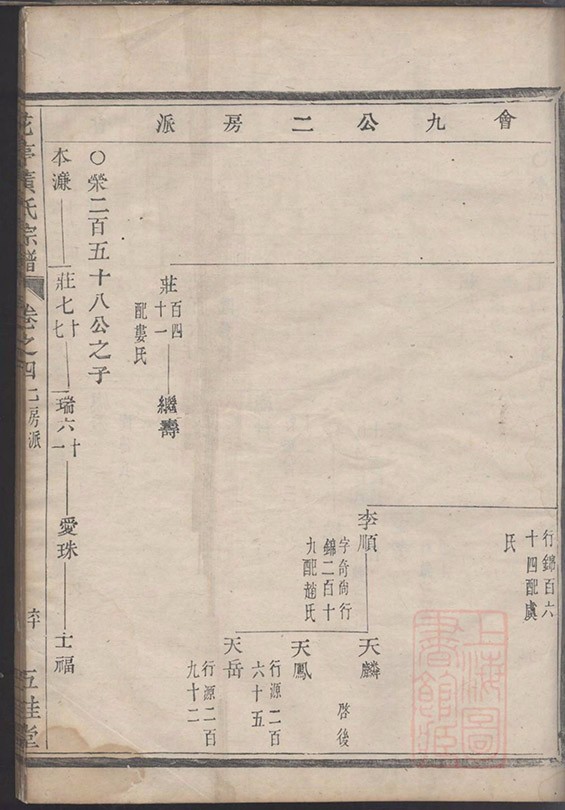 會九公二房派
行錦百六
十四配虞
氏
李順
字奇尚行
錦二百十
九配趙氏
天麟
啓後
天鳳
行源二百
六十五
天岳
行源二百
九十二
莊
百四
十一
配婁氏
繼壽
○榮二百五十八公之子
本濂
莊七十七
瑞六十一
愛珠
士福
花亭黃氏宗譜
卷之四
二房派
五桂堂
上海圖書館藏